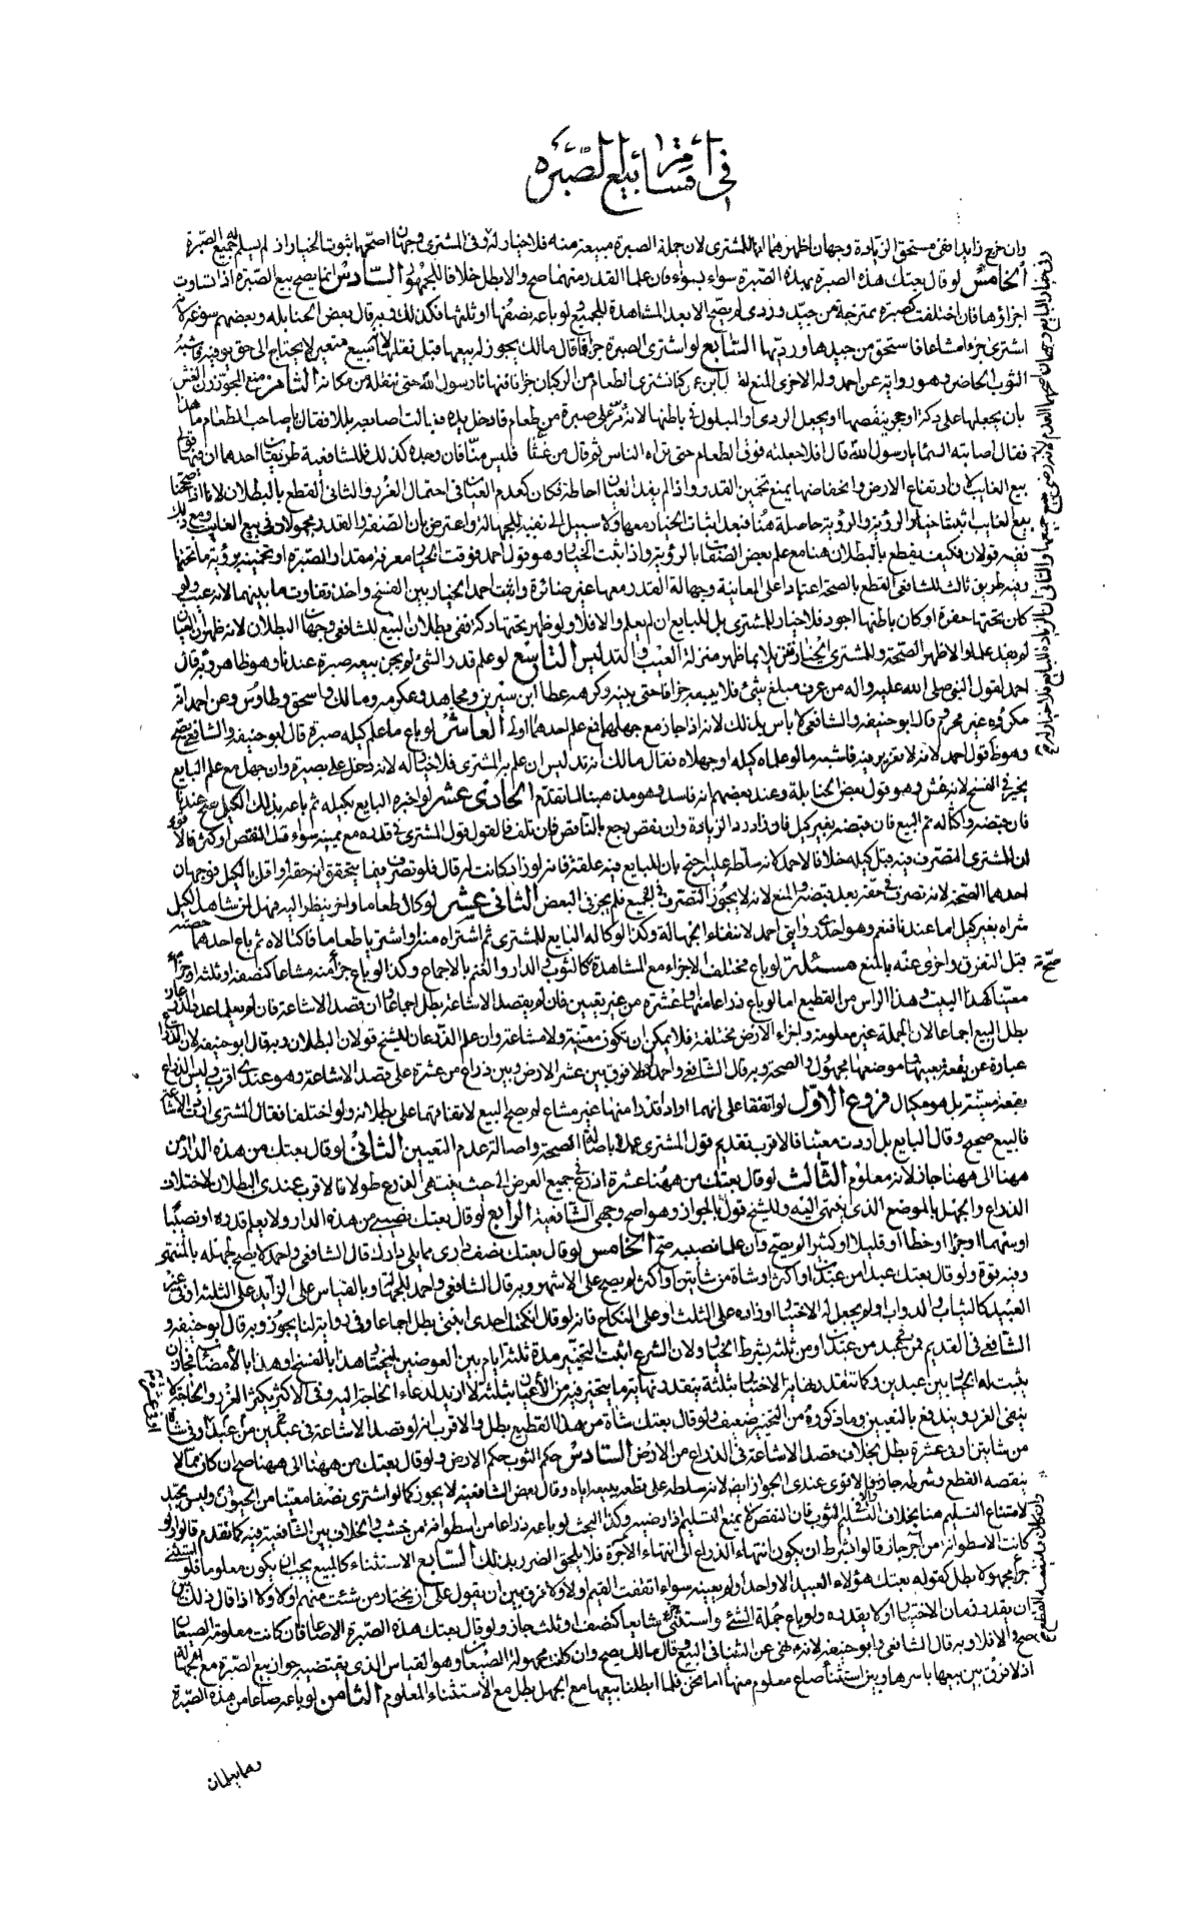 في أقسام بيع الصبرة
وان خرج زايدا ففي مستحق الزيادة وجهان اظهرهما انها للمشتري لان جملة الصبرة مبيعة منه فلا خيار له وفي المشتري وجهان اصحهما ثبوت الخيار اذ لم يسلم له جميع الصبرة
الخامس لو قال بعتك هذه الصبرة بهذه الصبرة سواء بسواء فان علما القدر منهما صح والا بطل خلافا للجمهور السادس انما يصح بيع الصبرة اذا تساوت
اجزاؤها فان اختلفت كصبرة ممتزجة من جيد وردي لم يصح الا بعد المشاهدة للجميع ولو باعه نصفها او ثلثها فكذلك وبه قال بعض الحنابلة وبعضهم سوغه كما لو
اشترى جزءا مشاعا فاستحق من جيدها ورديها السابع لو اشترى الصبرة جزافا قال مالك يجوز له بيعها قبل نقلها لانه مبيع متعين لا يحتاج الى حق توفية فاشبه
الثوب الحاضر وهو رواية عن احمد وله الاخرى المنع لقول ابن عمر كنا نشتري الطعام من الركبان جزافا فنهانا رسول الله حتى ننقله من مكانه الثامن منع الجمهور من الغش
بان يجعلها على دكة او حجر ينقصها او يجعل الردي او المبلول في باطنها لانه مر على صبرة من طعام فادخل يده فنالت اصابعه بللا فقال يا صاحب الطعام ما هذا
فقال اصابته السماء يا رسول الله قال افلا جعلته فوق الطعام حتى تراه الناس ثم قال من غشنا فليس منا فان وجده كذلك فللشافعية طريقان احدهما ان فيها قولي
بيع الغايب لان ارتفاع الارض وانخفاضها يمنع تخمين القدر واذا لم يفد العيان احاطة فكان كعدم العيان في احتمال الغرر والثاني القطع بالبطلان لانا اذا صححنا
بيع الغايب اثبتنا خيار الرؤية والرؤية حاصلة هنا فبعد اثبات الخيار معها ولا سبيل الى نفيه للجهالة واعترض بان الصفة والقدر مجهولان في بيع الغايب ومع ذلك
ففيه قولان فكيف يقطع بالبطلان هنا مع علم بعض الصفات بالرؤية واذا ثبت الخيار وهو قول احمد فوقت الخيار معرفة مقدار الصبرة او تخمينه برؤية ما تحتها
وفيه طريق ثالث للشافعي القطع بالصحة اعتمادا على المعاينة وجهالة القدر معها غير ضائرة واثبت احمد الخيار بين الفسخ واخذ تفاوت ما بينهما لانه عيب ولو
كان تحتها حفرة او كان باطنها اجود فلا خيار للمشتري بل للبايع ان لم يعلم والا فلا ولو ظهر تحتها دكة ففي بطلان البيع للشافعي وجهان البطلان لانه ظهر ان العيان
لم يفد علما والاظهر الصحة وللمشتري الخيار تنزيلا لما ظهر منزلة العيب والتدليس التاسع لو علم قدر الشئ لم يجز بيعه صبرة عندنا وهو ظاهر وبه قال
احمد لقول النبي صلى الله عليه واله من عرف مبلغ شئ فلا يبيعه جزافا حتى يبينه وكرهه عطا ابن سيرين ومجاهد وعكرمه ومالك واسحق وطاوس وعن احمد انه
مكروه غير محرم وقال ابو حنيفه والشافعي لا باس بذلك لانه اذا جاز مع جهلهما فمع علم احدهما اولى العاشر لو باع ما علم كيله صبرة قال ابو حنيفه والشافعي يصح
وهو ظ قول احمد لانه لا تغرير فيه فاشبه ما لو علما كيله او جهلاه وقال مالك انه تدليس ان علم به المشتري فلا خيار له لانه دخل على بصيرة وان جهل مع علم البايع
يخير في الفسخ لانه غش وهو قول بعض الحنابلة وعند بعضهم انه فاسد وهو مذهبنا لما تقدم الحادي عشر لو اخبره البايع بكيله ثم باعه بذلك الكيل صح عندنا
فان قبضه واكتاله ثم البيع فان قبضه بغير كيل فان زاد رد الزيادة وان نقص رجع بالناقص فان تلف فالقول قول المشتري في قدره مع يمينه سواء قل النقص او كثر والاقوى
ان للمشتري التصرف فيه قبل كيله خلافا لاحمد لانه سلطه عليه احتج بان للبايع فيه علقة فانه لو زاد كانت له قال فلو تصرف فيما يتحقق انه حقه او اقل بالكيل فوجهان
احدهما الصحة لانه تصرف في حقه بعد قبضه والمنع لانه لا يجوز التصرف في الجميع فلم يجز في البعض الثاني عشر لو كال طعاما واخر ينظر اليه فهل لمن شاهد الكيل
شراه بغير كيل اما عندنا فنعم وهو احدى روايتي احمد لانتفاء الجهالة وكذا لو كاله البايع للمشتري ثم اشتراه منه ولو اشتريا طعاما فاكتالاه ثم باع احدهما حصته
قبل التفرق واخرى عنه بالمنع مسئلة لو باع مختلف الاجزاء مع المشاهدة كالثوب والدار والغنم صح بالاجماع وكذا لو باع جزأ منه مشاعا كنصفه او ثلثه او جزأ
معينا كهذا البيت وهذا الراس من القطيع اما لو باع ذراعا منها او عشرة من غير تعيين فان لم يقصد الاشاعة بطل اجماعا وان قصد الاشاعة فان لم يعلما عدد الذرعان
بطل البيع اجماعا لان الجملة غير معلومة واجزاء الارض مختلفة فلا يمكن ان يكون معينة ولا مشاعة وان علم القدرعان للشيخ قولان البطلان وبه قال ابو حنيفه لان الذراع
عبارة عن بقعة بعينها وموضعها مجهول والصحة وبه قال الشافعي واحمد اذ لا فرق بين عشر الارض وبين ذراع من عشرة على قصد الاشاعة وهو عندي اقرب وليس الذراع
بقعة معينة بل هو مكيال فروع الاول لو اتفقا على انهما ارادا قدرا منها غير مشاع لم يصح البيع لاتفاقهما على بطلانه ولو اختلفا فقال المشتري اردت الاشاعة
فالبيع صحيح وقال البايع بل اردت معينا فالاقرب تقديم قول المشتري عملا باصالة الصحة واصالة عدم التعيين الثاني لو قال بعتك من هذه الدار من
ههنا الى ههنا جاز لانه معلوم الثالث لو قال بعتك من ههنا عشرة اذرع في جميع العرض الى حيث ينتهي الذرع طولا فالاقرب عندي البطلان لاختلاف
الذراع والجهل بالموضع الذي ينتهي اليه وللشيخ قول بالجواز وهو اصح وجهي الشافعية الرابع لو قال بعتك نصيبي من هذه الدار ولا يعلم قدره او نصيبا
او سهما او جزءا او حظا او قليلا او كثيرا لم يصح وان علما نصيبه صح الخامس لو قال بعتك نصف داري مما يلي دارك قال الشافعي واحمد لا يصح لجهله بالمنتهى
وفيه قوة ولو قال بعتك عبدا من عبدين او اكثر او شاة من شاتين او اكثر لم يصح على الاشهر وبه قال الشافعي واحمد للجهالة وبالقياس على الزايد على الثلثة او في غير
العبيد كالثياب والدواب او لم يجعل له الاختيار او زاده على الثلث او على النكاح فانه لو قال انكحتك احدى ابنتي بطل اجماعا وفي رواية لنا يجوز وبه قال ابو حنيفه و
الشافعي في القديم في عبد من عبدين او من ثلثة بشرط الخيار ولان الشرع اثبت التخيير مدة ثلثة ايام بين العوضين ليختار هذا بالفسخ او هذا بالامضاء فجاز ان
يثبت له الخيار بين عبدين وكما تتقدر نهاية الاختيار بثلثة يتقدر نهاية ما يتخير فيه من الاعيان بثلثة لان زيد لدعاء الحاجة اليه وفي الاكثر يكثر الغرر والحاجة لا
ينفي الغرر ويندفع بالتعيين وما ذكروه من التخيير ضعيف ولو قال بعتك شاة من هذا القطيع بطل والاقرب انه لو قصد الاشاعة في عبد من عبدين او في شاة
من شاتين او عشرة بطل بخلاف قصد الاشاعة في الذراع من الارض السادس حكم الثوب حكم الارض ولو قال بعتك من ههنا الى ههنا صح ان كان مما لا
ينقصه القطع وشرطه جاز والاقوى عندي الجواز ايضا لانه سلطه على قطعه ببيعه اياه وقال بعض الشافعية لا يجوز كما لو اشترى نصفا معينا من الحيوان وليس بجيد
لامتناع التسليم هنا بخلاف التسليم في الثوب فان النقص لا يمنع التسليم اذا رضيه وكذا البحث لو باعه ذراعا من اسطوانة من خشب والخلاف بين الشافعية فيه كما تقدم قالوا ولو
كانت الاسطوانة من آجر جاز قالوا بشرط ان يكون انتهاء الذراع الى انتهاء الآجرة فلا يلحق الضرر بذلك السابع الاستثناء كالمبيع يجب ان يكون معلوما فلو استثنى
جزءا مجهولا بطل كقوله بعتك هؤلاء العبيد الا واحدا ولم يعينه سواء اتفقت القيم او لا ولا فرق بين ان يقول على ان يختار من شئت منهم او لا ولا اذا قال ذلك بين
ان يقدر زمان الاختيار او لا يقدره ولو باع جملة الشئ واستثنى جزء شايعا كنصف او ثلث جاز ولو قال بعتك هذه الصبرة الا صاعا فان كانت معلومة الصيعان
صح والا فلا وبه قال الشافعي وابو حنيفه لانه نهى عن الثنيا في البيع وقال مالك يصح وان كانت مجهولة الصيعان وهو القياس الذي يقتضيه جواز بيع الصبرة مع الجهالة
اذ لا فرق بين بيعها باسرها وبين استثناء صاع معلوم منها اما نحن فلما ابطلنا بيعها مع الجهل بطل مع الاستثناء المعلوم الثامن لو باعه صاعا من هذه الصبرة
وهما يعلمان